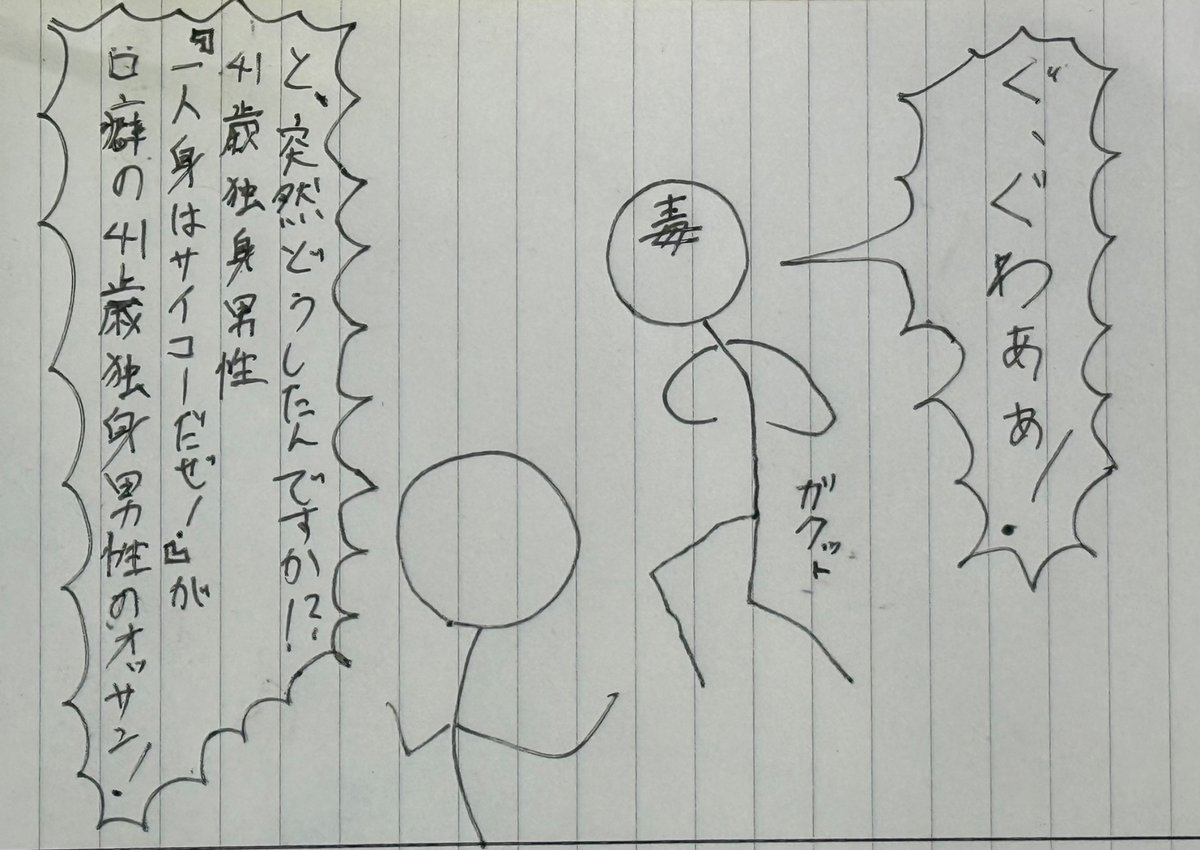 ぐ、ぐわぁぁ!
毒
ガクット
と、突然どうしたんですか!?
41歳独身男性
『一人身はサイコーだぜ!』が
口癖の41歳独身男性のオッサン!